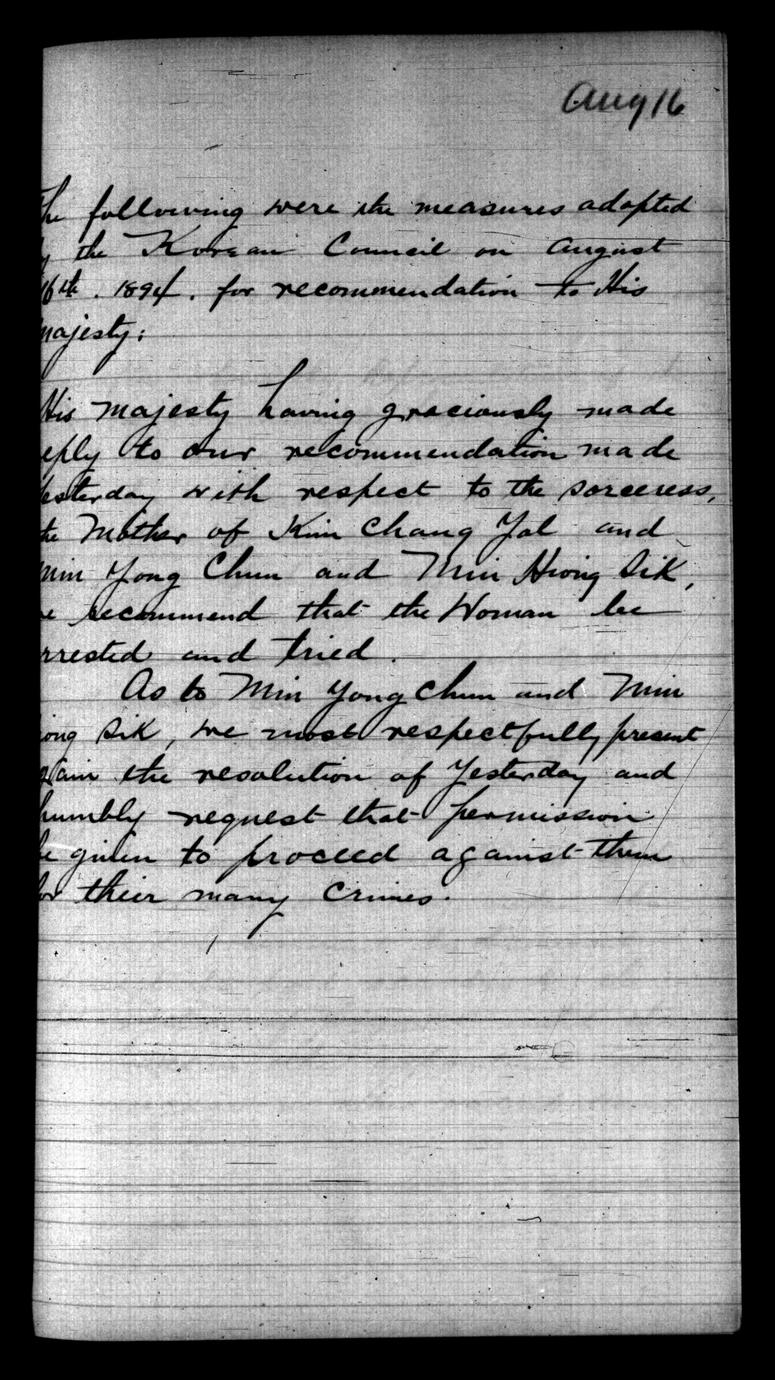 Aug 16
The following were the measures adopted
by the Korean Council on August
16th. 1894. for recommendation to His
Majesty:
His Majesty having graciously made
reply to our recommendation made
yesterday with respect to the sorceress,
the Mother of Kim Chang Yol and
Min Yong Chun and Min Hiong Sik,
we recommend that the Woman be
arrested and tried.
As to Min Yong Chun and Min
Hiong Sik, we most respectfully present
again the resolution of Yesterday and
humbly request that permission
be given to proceed against them
for their many Crimes.